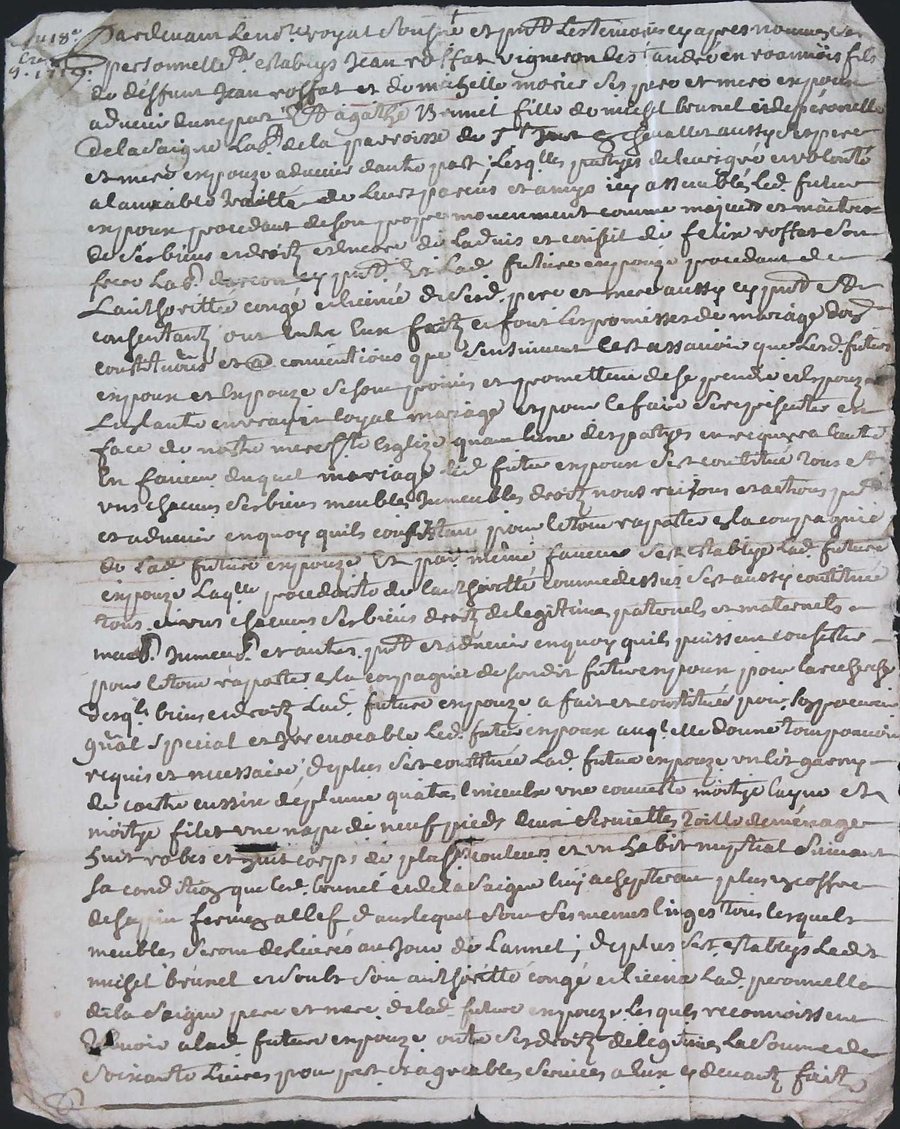 Du 18e
9. 1719.
Pardevant le notre royal soubsné et pntz les tesmoins cy apres nommés
personnellemt establys Jean roffat vigneron de st andré en roannois fils
de deffunt Jean roffat et de michelle ses pere et mere expoux
advenir dune part Et agathe Brunel fille de michel brunel et de peronnelle
de la Saigne Lab. de la parroisse de St Just en chevallet aussy ses pere
et mere expouze advenir dautre part, Lesqlles partyes de leur gré et volonté
a lamiable traitté de leurs parens et amys icy assemblés, led. futur
expoux procedant de son propre mouvement comme majeur et maitre
de ses biens et droitz et encore de ladvis et conseil de felix roffat son
frere Lab. cy pnt Et Lad. future expouze procedant de
Lauthoritté congé et licence de sesd. pere et mere aussy cy pntz et
consentantz ont entre eux faitz et font les promesses de mariage
constitutions et conventions que sensuivent cest assavoir que lesd. futurs
expoux et expouze se sont promis et promettent de se prendre et expouzer
Lun lautre en vray et loyal mariage et pour le faire se representer en
face de notre mere ste Esglize quand lune des partyes en requerra lautre
En faveur duquel mariage led. futur expoux sest constitué tous et
uns chacuns ses biens meubles Immeubles droitz noms raisons et actions pntz
et advenir en quoy quils consistent pour le tout rapporter a la compagnie
de lad. future expouze Et par même faveur sest establye lad. future
expouze Laqlle procedante de lauthoritté comme dessus sest aussy constituée
tous et uns chacuns ses biens droitz de legitime paternels et maternels
meub. Immeub. et autres pntz et advenir en quoy quils puissent consister
pour le tout rapporter a la compagnie de sondit futur expoux pour la recherche
desqls biens et droitz Lad. future expouze a fait et constitué pour son procureur
gnal special et Irrevocable led. futur expoux auql elle donne tout pouvoir
requis et necessaire; de plus sest constituée Lad. future expouze un lit garny
de coutre cussin de plume quatre linceuls une couverte moitye layne et
moitye filet une nape de neuf pieds deux serviettes toille de ménage
huit robes et huit corps de plusrs couleurs et un habit nuptial suivant
sa condition que led. brunel et de la Saigne luy achepteront plus un coffre
de sapin fermé a clef dans lequel sont ses menus linges tous lesquels
meubles seront deslivrés au jour de lannel; de plus sest establys ledit
michel brunel et soubs son authoritté congé et licence Lad. peronnelle
de la Saigne pere et mere de lad. future expouze Lesquels reconnoissent
devoir a lad. future expouze outre ses droitz de legitimes la somme de
Soixante livres pour pretz et agreables services a eux cy devantz faitz